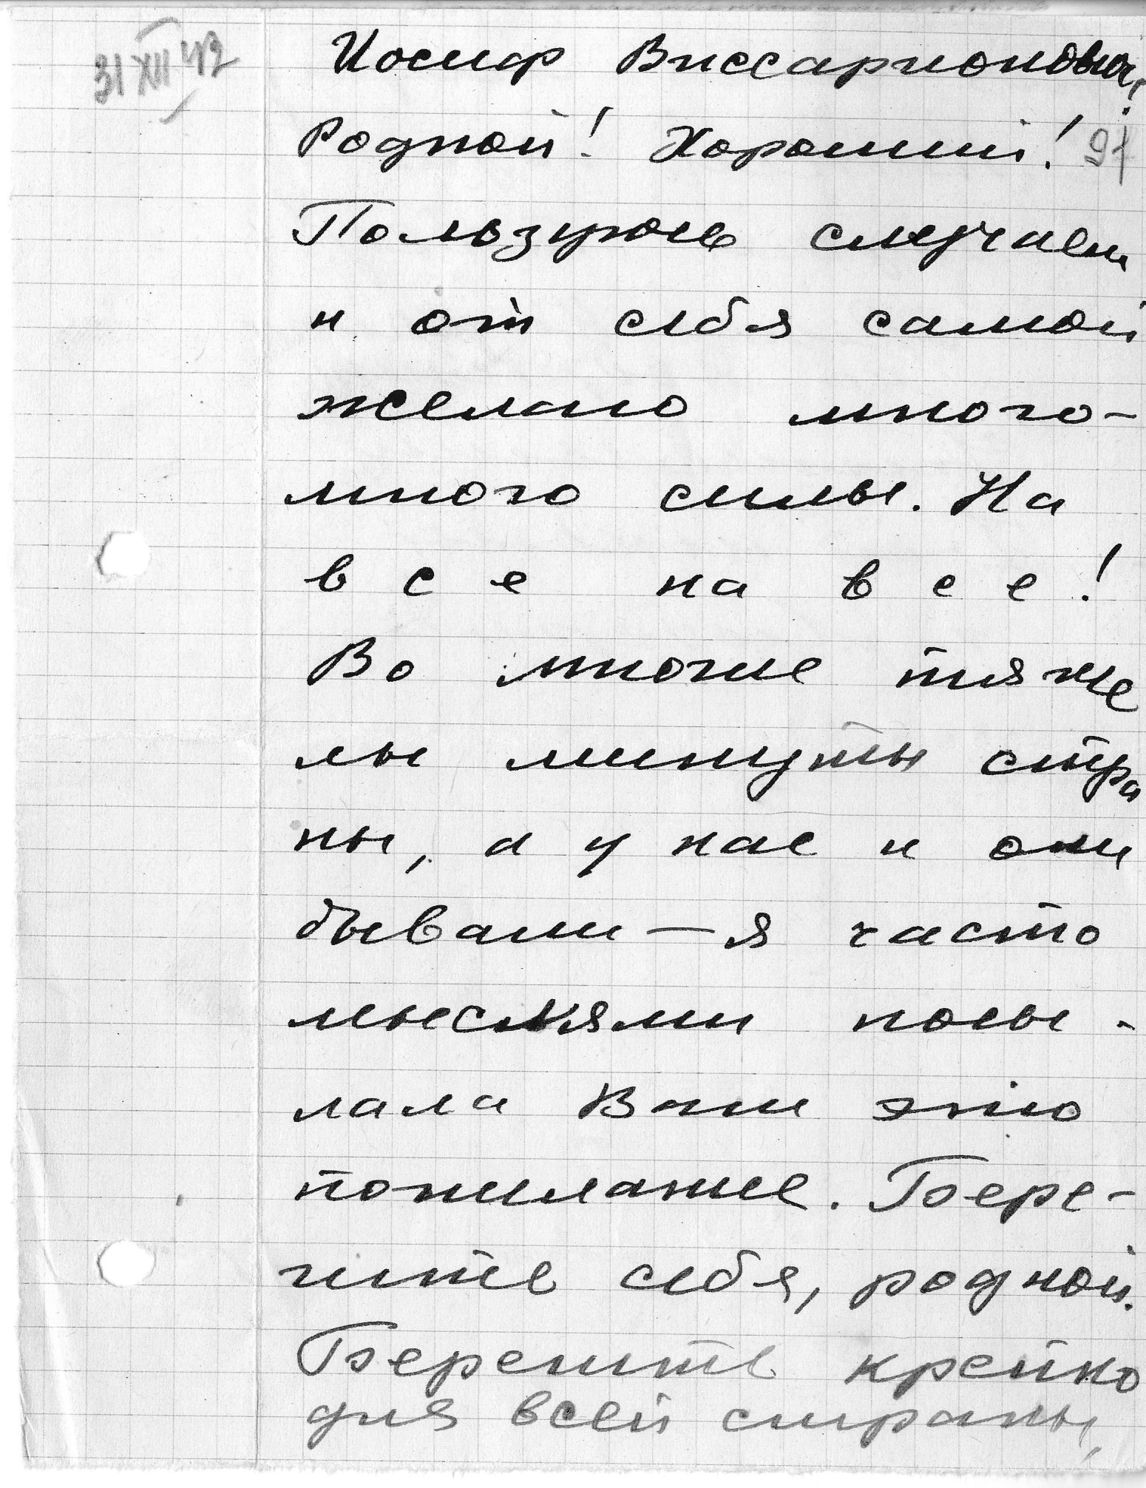 31 XII 42
Иосиф Виссарионович,
Родной! Хороший! 91
Пользуюсь случаем
и от себя самой
желаю много-
много силы. На
все на все!
Во многие тяже
лы минуты стра
ны, а у нас и они
бывали — я часто
мыслями посы-
лала Вам это
пожелание. Бере-
гите себя, родной.
Берегите крепко
для всей страны,